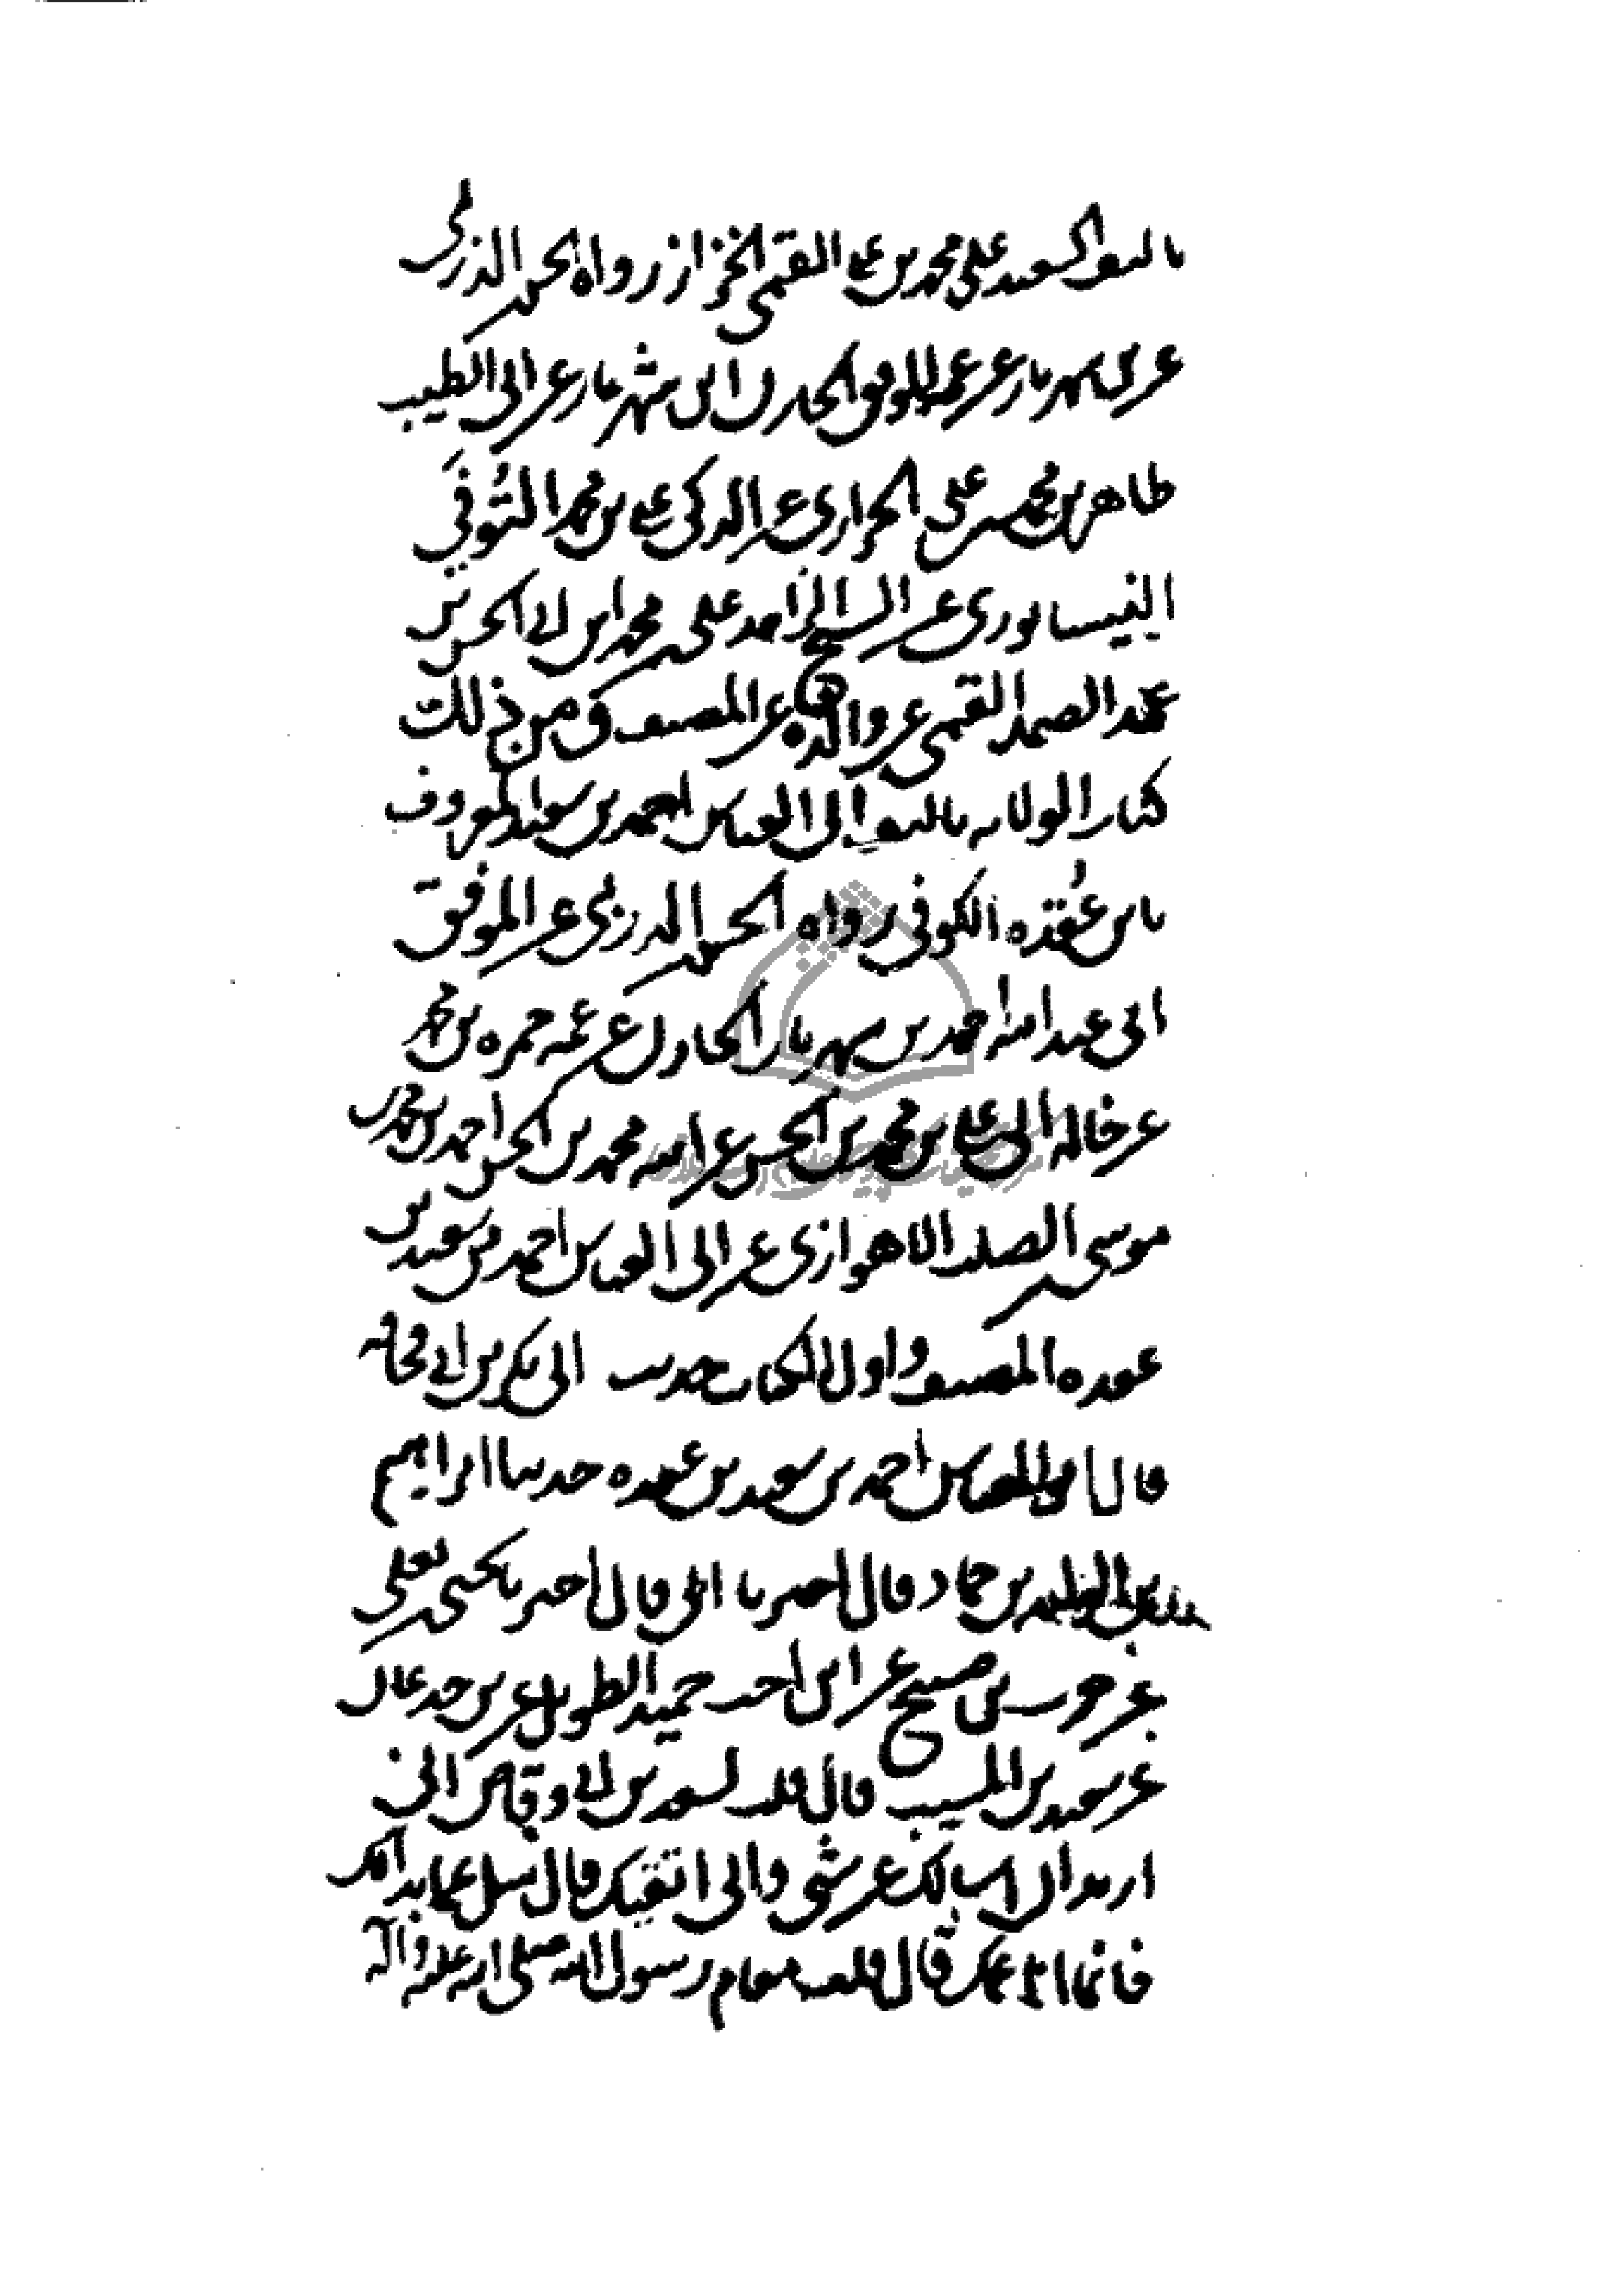 تاليف السعيد علي محمد بن علي القمي الخزاز رواه الحسن الدربي
عن بن شهريار عن عمه الموفق الخازن ابن شهريار عن ابي الطيب
طاهر بن محمد بن علي الجواري عن الزكي علي بن محمد التوني
النيسابوري عن الشيخ الزاهد علي بن محمد ابن ابي الحسن بن
عبد الصمد القمي عن والده عن المصنف ق من ذلك
كتاب الولايه تاليف ابي العباس احمد بن سعيد المعروف
بابن عُقده الكوفي رواه الحسن الدربي عن الموفق
ابي عبد الله احمد بن شهريار الخازن عن عمه حمزه بن محمد
عن خاله ابي علي بن محمد بن الحسن عن ابيه محمد بن الحسن احمد بن محمد بن
موسى بن الصلت الاهوازي عن ابي العباس احمد بن سعيد بن
عقده المصنف و اول الكتاب حديث ابي بكر بن ابي قحافه
قال ابو العباس احمد بن سعيد بن عقده حدثنا ابراهيم
بن الوليد بن حماد قال اخبرنا ابي قال اخبرنا يحيى بن يعلى
عن حرب بن صبيح عن ابن اخت حميد الطويل عن بن جدعان
عن سعيد بن المسيب قال قلت لسعد بن ابي وقاص اني
اريد ان اسالك عن شي واني اتقيك قال سل عما بدا لك
فانما انا عمك قال قلت مقام رسول الله صلى الله عليه واله